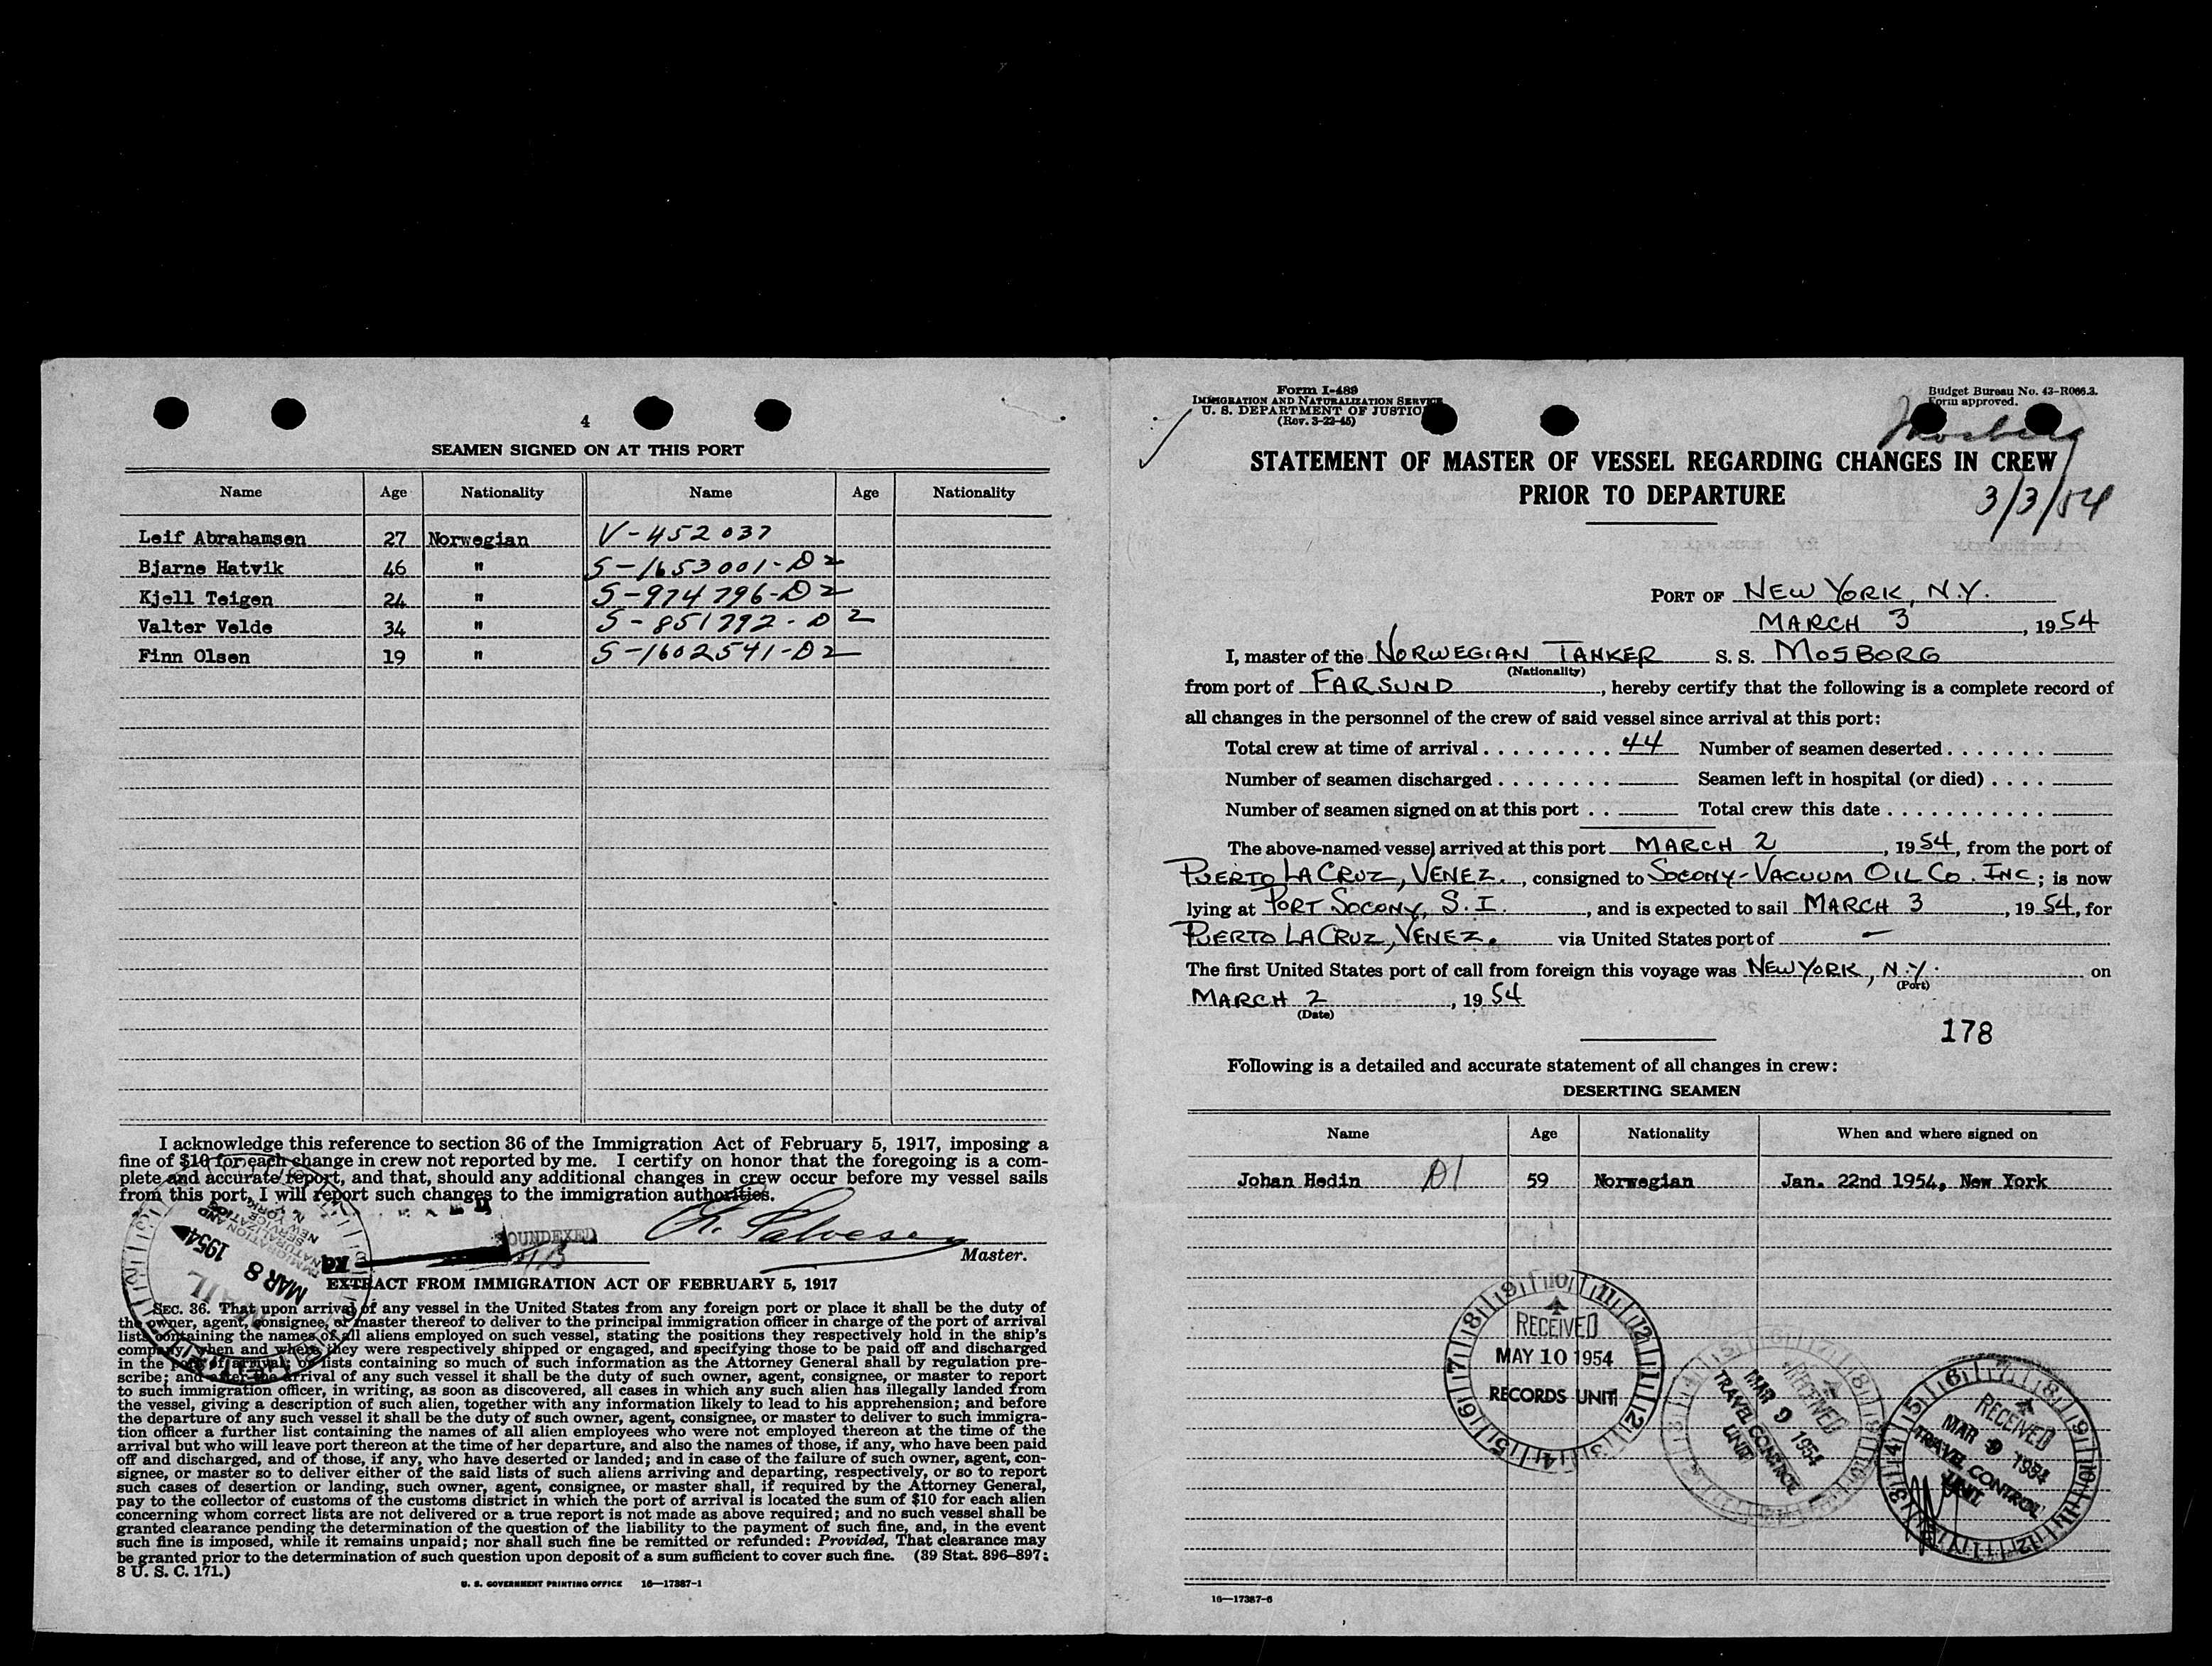 4
SEAMEN SIGNED ON AT THIS PORT
Name Age Nationality Name Age Nationality
Leif Abrahamsen 27 Norwegian V-452037
Bjarne Hatvik 46 " S-1653001-D2
Kjell Teigen 24 " S-974796-D2
Valter Velde 34 " S-851792-D2
Finn Olsen 19 " S-1602541-D2
I acknowledge this reference to section 36 of the Immigration Act of February 5, 1917, imposing a
fine of $10 for each change in crew not reported by me. I certify on honor that the foregoing is a com-
plete and accurate report, and that, should any additional changes in crew occur before my vessel sails
from this port, I will report such changes to the immigration authorities.
IMMIGRATION AND
NATURALIZATION
SERVICE
NEW YORK, N.Y.
MAR 8 1954
MAIL
SOUNDEXED
Salvesen
Master.
EXTRACT FROM IMMIGRATION ACT OF FEBRUARY 5, 1917
SEC. 36. That upon arrival of any vessel in the United States from any foreign port or place it shall be the duty of
the owner, agent, consignee, or master thereof to deliver to the principal immigration officer in charge of the port of arrival
lists containing the names of all aliens employed on such vessel, stating the positions they respectively hold in the ship's
company, when and where they were respectively shipped or engaged, and specifying those to be paid off and discharged
in the port of arrival; or lists containing so much of such information as the Attorney General shall by regulation pre-
scribe; and after the arrival of any such vessel it shall be the duty of such owner, agent, consignee, or master to report
to such immigration officer, in writing, as soon as discovered, all cases in which any such alien has illegally landed from
the vessel, giving a description of such alien, together with any information likely to lead to his apprehension; and before
the departure of any such vessel it shall be the duty of such owner, agent, consignee, or master to deliver to such immigra-
tion officer a further list containing the names of all alien employees who were not employed thereon at the time of the
arrival but who will leave port thereon at the time of her departure, and also the names of those, if any, who have been paid
off and discharged, and of those, if any, who have deserted or landed; and in case of the failure of such owner, agent, con-
signee, or master so to deliver either of the said lists of such aliens arriving and departing, respectively, or so to report
such cases of desertion or landing, such owner, agent, consignee, or master shall, if required by the Attorney General,
pay to the collector of customs of the customs district in which the port of arrival is located the sum of $10 for each alien
concerning whom correct lists are not delivered or a true report is not made as above required; and no such vessel shall be
granted clearance pending the determination of the question of the liability to the payment of such fine, and, in the event
such fine is imposed, while it remains unpaid; nor shall such fine be remitted or refunded: Provided, That clearance may
be granted prior to the determination of such question upon deposit of a sum sufficient to cover such fine. (39 Stat. 896-897;
8 U. S. C. 171.)
U. S. GOVERNMENT PRINTING OFFICE 16—17387-1
Form I-489
IMMIGRATION AND NATURALIZATION SERVICE
U. S. DEPARTMENT OF JUSTICE
(Rev. 3-22-45)
Budget Bureau No. 43-R066.3.
Form approved.
Mosborg
STATEMENT OF MASTER OF VESSEL REGARDING CHANGES IN CREW
PRIOR TO DEPARTURE
3/3/54
PORT OF NEW YORK, N.Y.
MARCH 3, 1954
I, master of the NORWEGIAN TANKER S. S. MOSBORG
(Nationality)
from port of FARSUND, hereby certify that the following is a complete record of
all changes in the personnel of the crew of said vessel since arrival at this port:
Total crew at time of arrival . . . . . . . . . 44 Number of seamen deserted . . . . . . .
Number of seamen discharged . . . . . . . . Seamen left in hospital (or died) . . . .
Number of seamen signed on at this port . . Total crew this date . . . . . . . . . . .
The above-named vessel arrived at this port MARCH 2, 1954, from the port of
PUERTO LA CRUZ, VENEZ., consigned to SOCONY-VACUUM OIL CO. INC; is now
lying at PORT SOCONY, S.I., and is expected to sail MARCH 3, 1954, for
PUERTO LA CRUZ, VENEZ. via United States port of —
The first United States port of call from foreign this voyage was NEW YORK, N.Y. on
(Port)
MARCH 2, 1954
(Date)
178
Following is a detailed and accurate statement of all changes in crew:
DESERTING SEAMEN
Name Age Nationality When and where signed on
Johan Hedin D1 59 Norwegian Jan. 22nd 1954, New York
RECEIVED
MAY 10 1954
RECORDS UNIT
RECEIVED
MAR 9 1954
TRAVEL CONTROL
UNIT
RECEIVED
MAR 9 1954
TRAVEL CONTROL
UNIT
16—17387-6